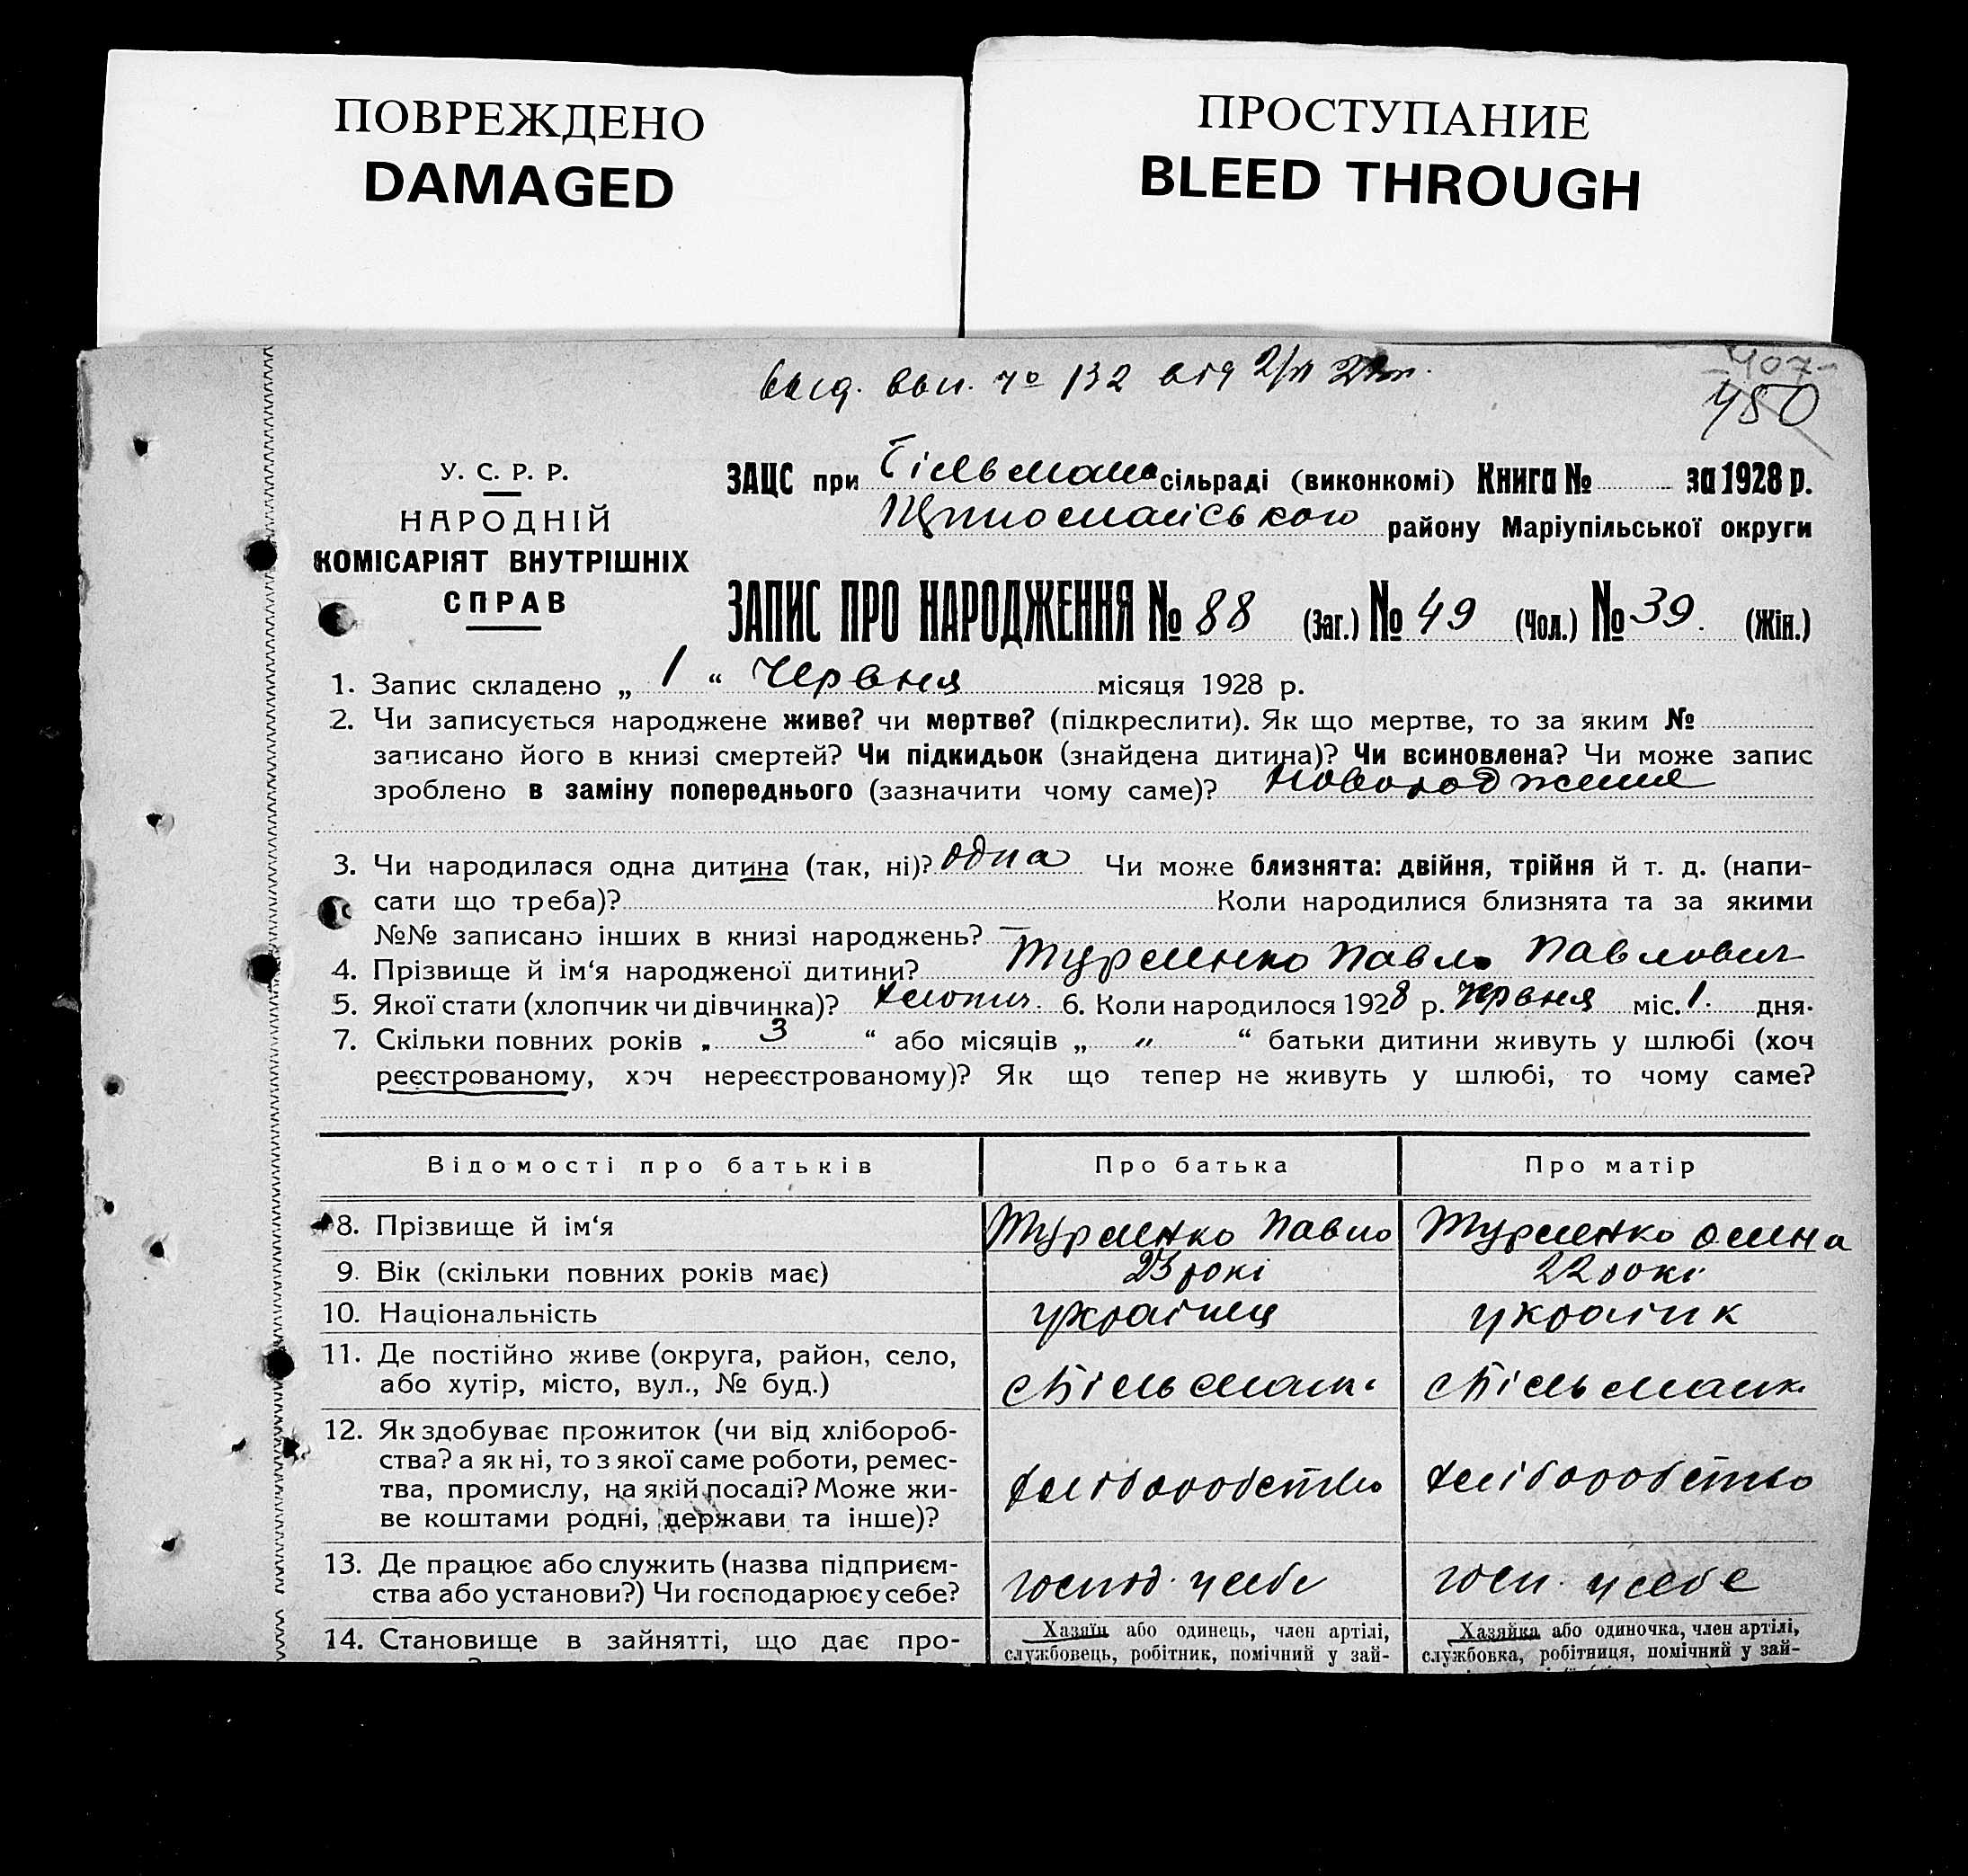 ПОВРЕЖДЕНО
DAMAGED
ПРОСТУПАНИЕ
BLEED THROUGH
132 від
407
480
У. С. Р. Р.
НАРОДНІЙ
КОМІСАРІЯТ ВНУТРІШНІХ
СПРАВ
ЗАЦС при сільраді (виконкомі) Книга № за 1928 р.
району Маріупільської округи
ЗАПИС ПРО НАРОДЖЕННЯ № 88 (Заг.) № 49 (Чол.) № 39. (Жін.)
1. Запис складено „ 1 “ Червня місяця 1928 р.
2. Чи записується народжене живе? чи мертве? (підкреслити). Як що мертве, то за яким №
записано його в книзі смертей? Чи підкидьок (знайдена дитина)? Чи всиновлена? Чи може запис
зроблено в заміну попереднього (зазначити чому саме)?
3. Чи народилася одна дитина (так, ні)? одна Чи може близнята: двійня, трійня й т. д. (напи-
сати що треба)? Коли народилися близнята та за якими
№№ записано інших в книзі народжень? —
4. Прізвище й ім‘я народженої дитини? Турменко Павло Павлович
5. Якої стати (хлопчик чи дівчинка)? хлопич. 6. Коли народилося 1928 р. Червня міс. 1. дня.
7. Скільки повних років „ 3 “ або місяців „ " “ батьки дитини живуть у шлюбі (хоч
реєстрованому, хоч нереєстрованому)? Як що тепер не живуть у шлюбі, то чому саме?
Відомості про батьків Про батька Про матір
8. Прізвище й ім‘я Турменко Павло Турменко
9. Вік (скільки повних років має) 23 рокі 22 рокі
10. Національність українец українк
11. Де постійно живе (округа, район, село,
або хутір, місто, вул., № буд.)
12. Як здобуває прожиток (чи від хлібороб-
ства? а як ні, то з якої саме роботи, ремес-
тва, промислу, на якій посаді? Може жи-
ве коштами родні, держави та інше)?
хліборобство хліборобство
13. Де працює або служить (назва підприєм-
ства або установи?) Чи господарює у себе?
господ. у себе госп. у себе
14. Становище в зайнятті, що дає про-
Хазяїн або одинець, член артілі,
службовець, робітник, помічний у зай-
Хазяйка або одиночка, член артілі,
службовка, робітниця, помічний у зай-